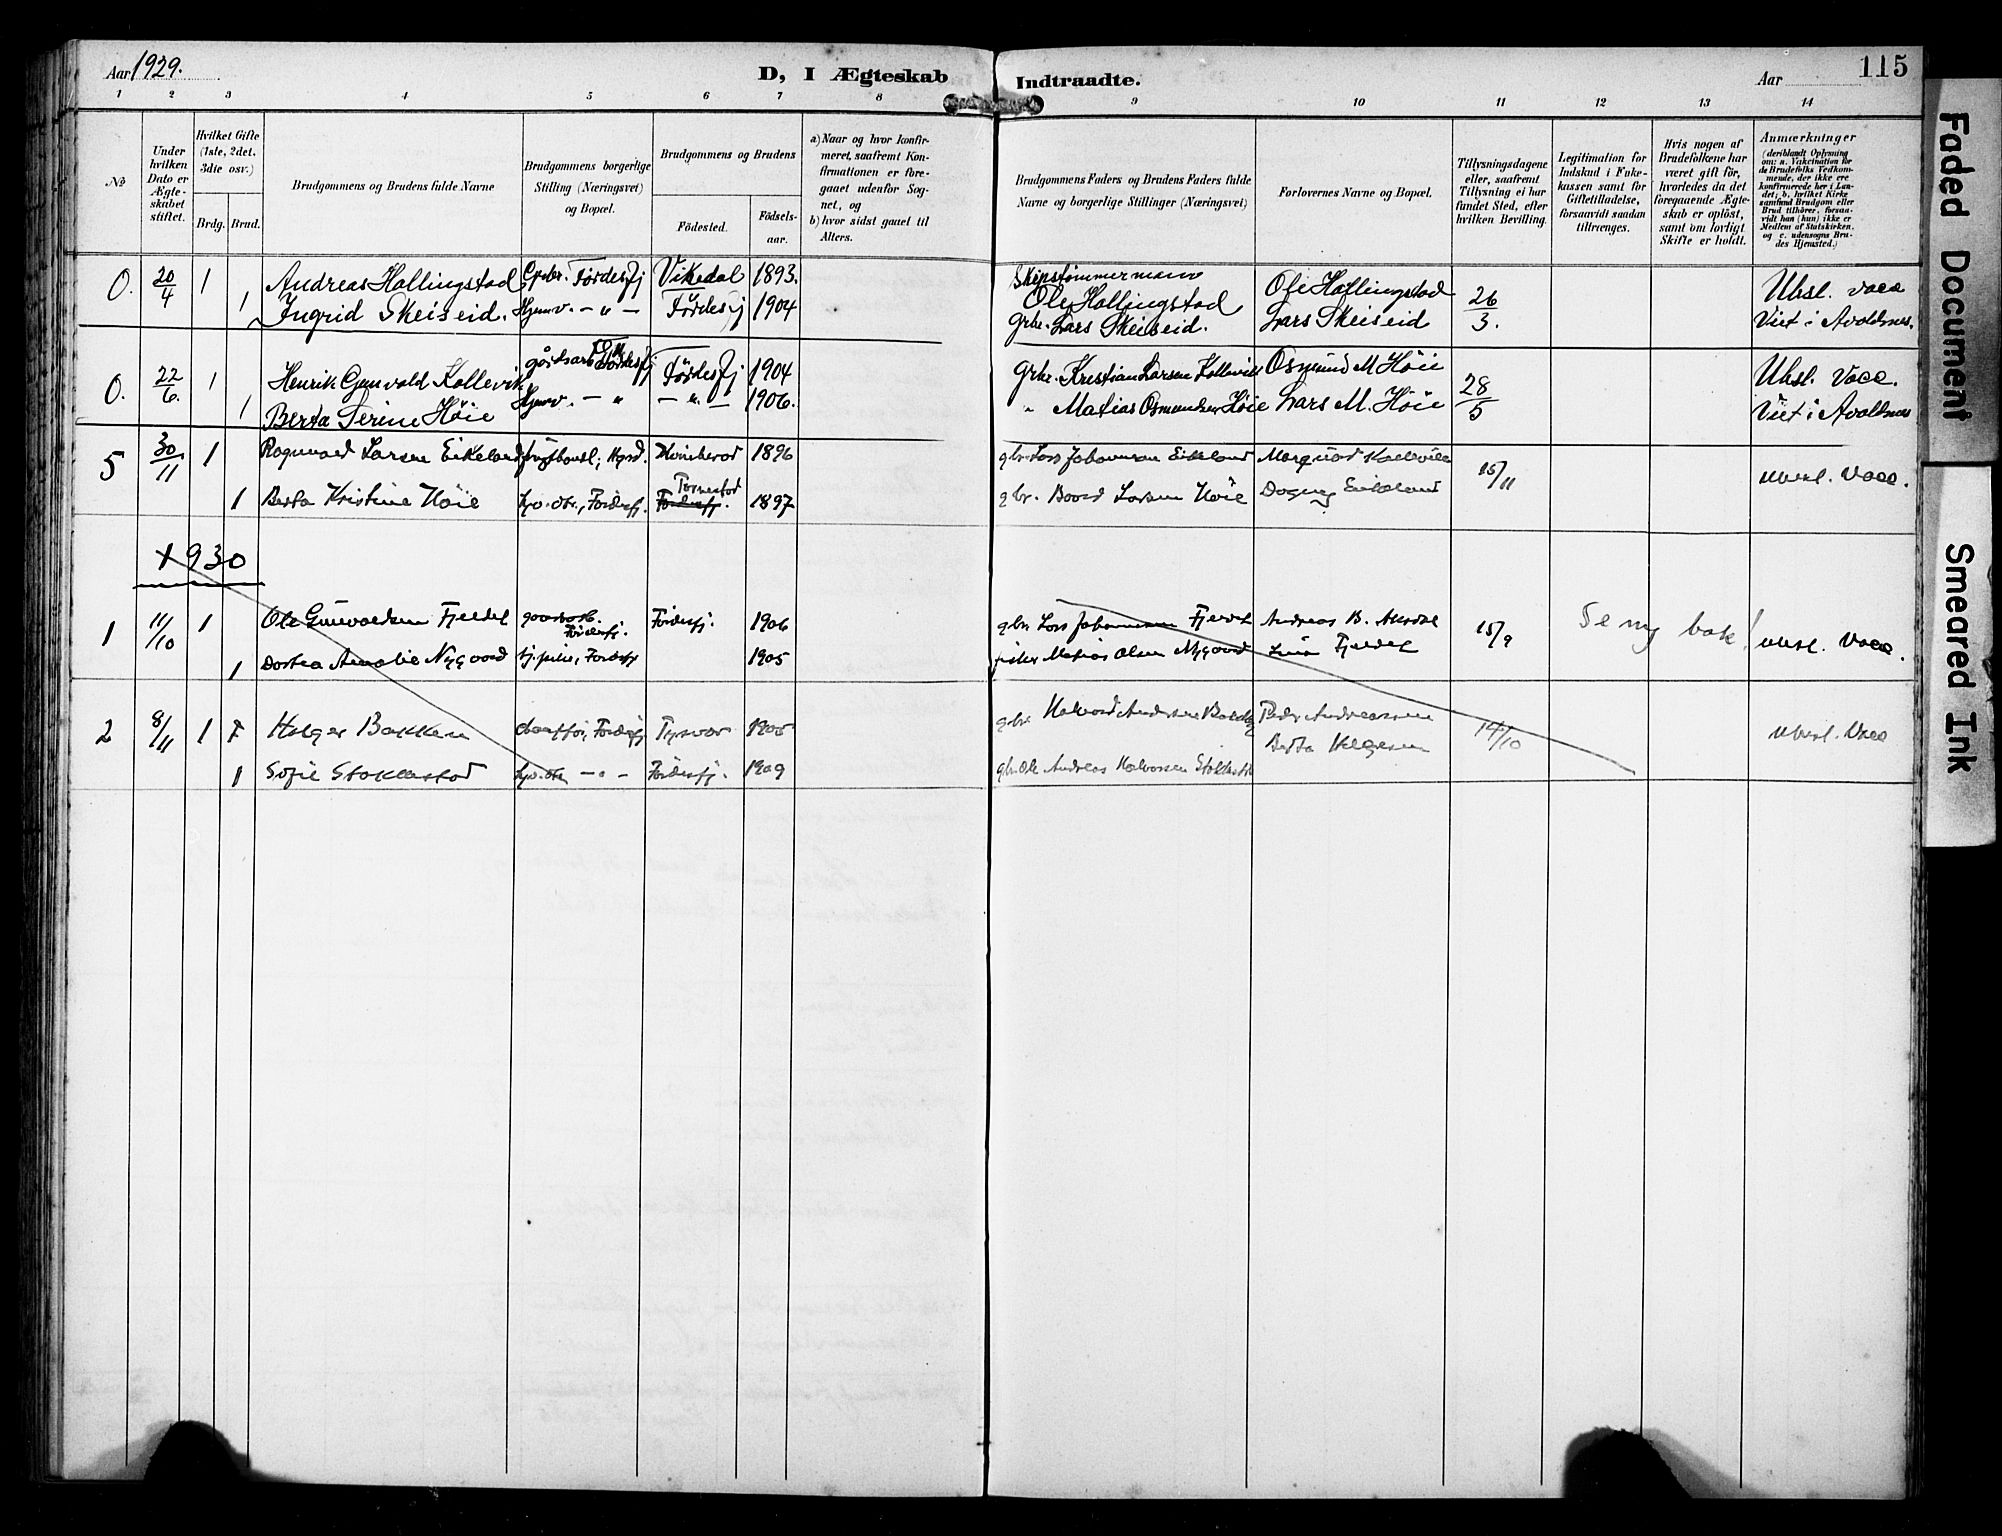 Aar 1929.
D, I Ægteskab Indtraadte.
Aar
115
1 2 3 4 5 6 7 8 9 10 11 12 13 14
No
Under hvilken Dato er Ægteskabet stiftet.
Hvilket Gifte (1ste, 2det, 3die osv.)
Brdg. Brud.
Brudgommens og Brudens fulde Navne
Brudgommens borgerlige Stilling (Næringsvei) og Bopæl.
Brudgommens og Brudens
Fødested.
Fødselsaar.
a) Naar og hvor konfirmeret, saafremt Konfirmationen er foregaaet udenfor Sognet, og
b) hvor sidst gaaet til Alters.
Brudgommens Faders og Brudens Faders fulde Navne og borgerlige Stillinger (Næringsvei)
Forlovernes Navne og Bopæl.
Tillysningsdagene eller, saafremt Tillysning ei har fundet Sted, efter hvilken Bevilling.
Legitimation for Indskud i Enkekassen samt for Giftetilladelse, forsaavidt saadan tiltrænges.
Hvis nogen af Brudefolkene har været gift før, hvorledes da det foregaaende Ægteskab er opløst, samt om lovligt Skifte er holdt.
Anmærkninger
(deriblandt Oplysning om: a. Vakcination for de Brudefolks Vedkommende, der ikke ere konfirmerede her i Landet; b. hvilket Kirkesamfund Brudgom eller Brud tilhører, forsaavidt han (hun) ikke er Medlem af Statskirken, og c. udensogns Brudes Hjemsted.)
0. 20/4 1 Andreas Hallingstad Grbr. Fördesfj Vikedal 1893. Skipstömmermann Ole Hallingstad Ole Hallingstad 26/3. Uhsl. vacc
1 Ingrid Skeiseid. Hjemv. - " - Fördesfj 1904 Grbr. Lars Skeiseid. Lars Skeiseid Viet i Avaldnes.
0. 22/6. 1 Henrik Gunvald Kallevik gårdsarb. Fördesfj Fördesfj 1904 Grbr. Kristian Larsen Kallevik Osmund M Höie 28/5 Uhsl. Vacc.
1 Berta Serine Höie Hjemv. - " - " - 1906. " Matias Osmundsen Höie Lars M. Höie Viet i Avaldnes
5 30/11 1 Ragnvald Larsen Eikeland 1896 gbr. Lars Johannesen Eikeland 15/11 Vacc.
1 Berta Kristine Höie Fördesfj. Fördesfj. 1897 gbr. Baard Larsen Höie Dagny Eikeland
1930
1 11/10 1 Ole Gunvaldsen Fjeldet Fördesfj. Fördesfj. 1906 gbr. Lars Johannesen Fjeldet Andreas B. 15/9 Se ny bok! Vacc.
1 Dortea Amalie Nygaard Fördesfj 1905 fisker Matias Olsen Nygaard Fjeldet
2 8/11 1 Holger Bakken Fördesfj Tysvær 1905 gbr. Halvard Andersen Peder Andreassen 14/10 Vacc
1 Sofie Stakkestad - " - Fördesfj. 1909 gbr. Ole Andreas Halvorsen Berta Helgesen
Faded Document
Smeared Ink